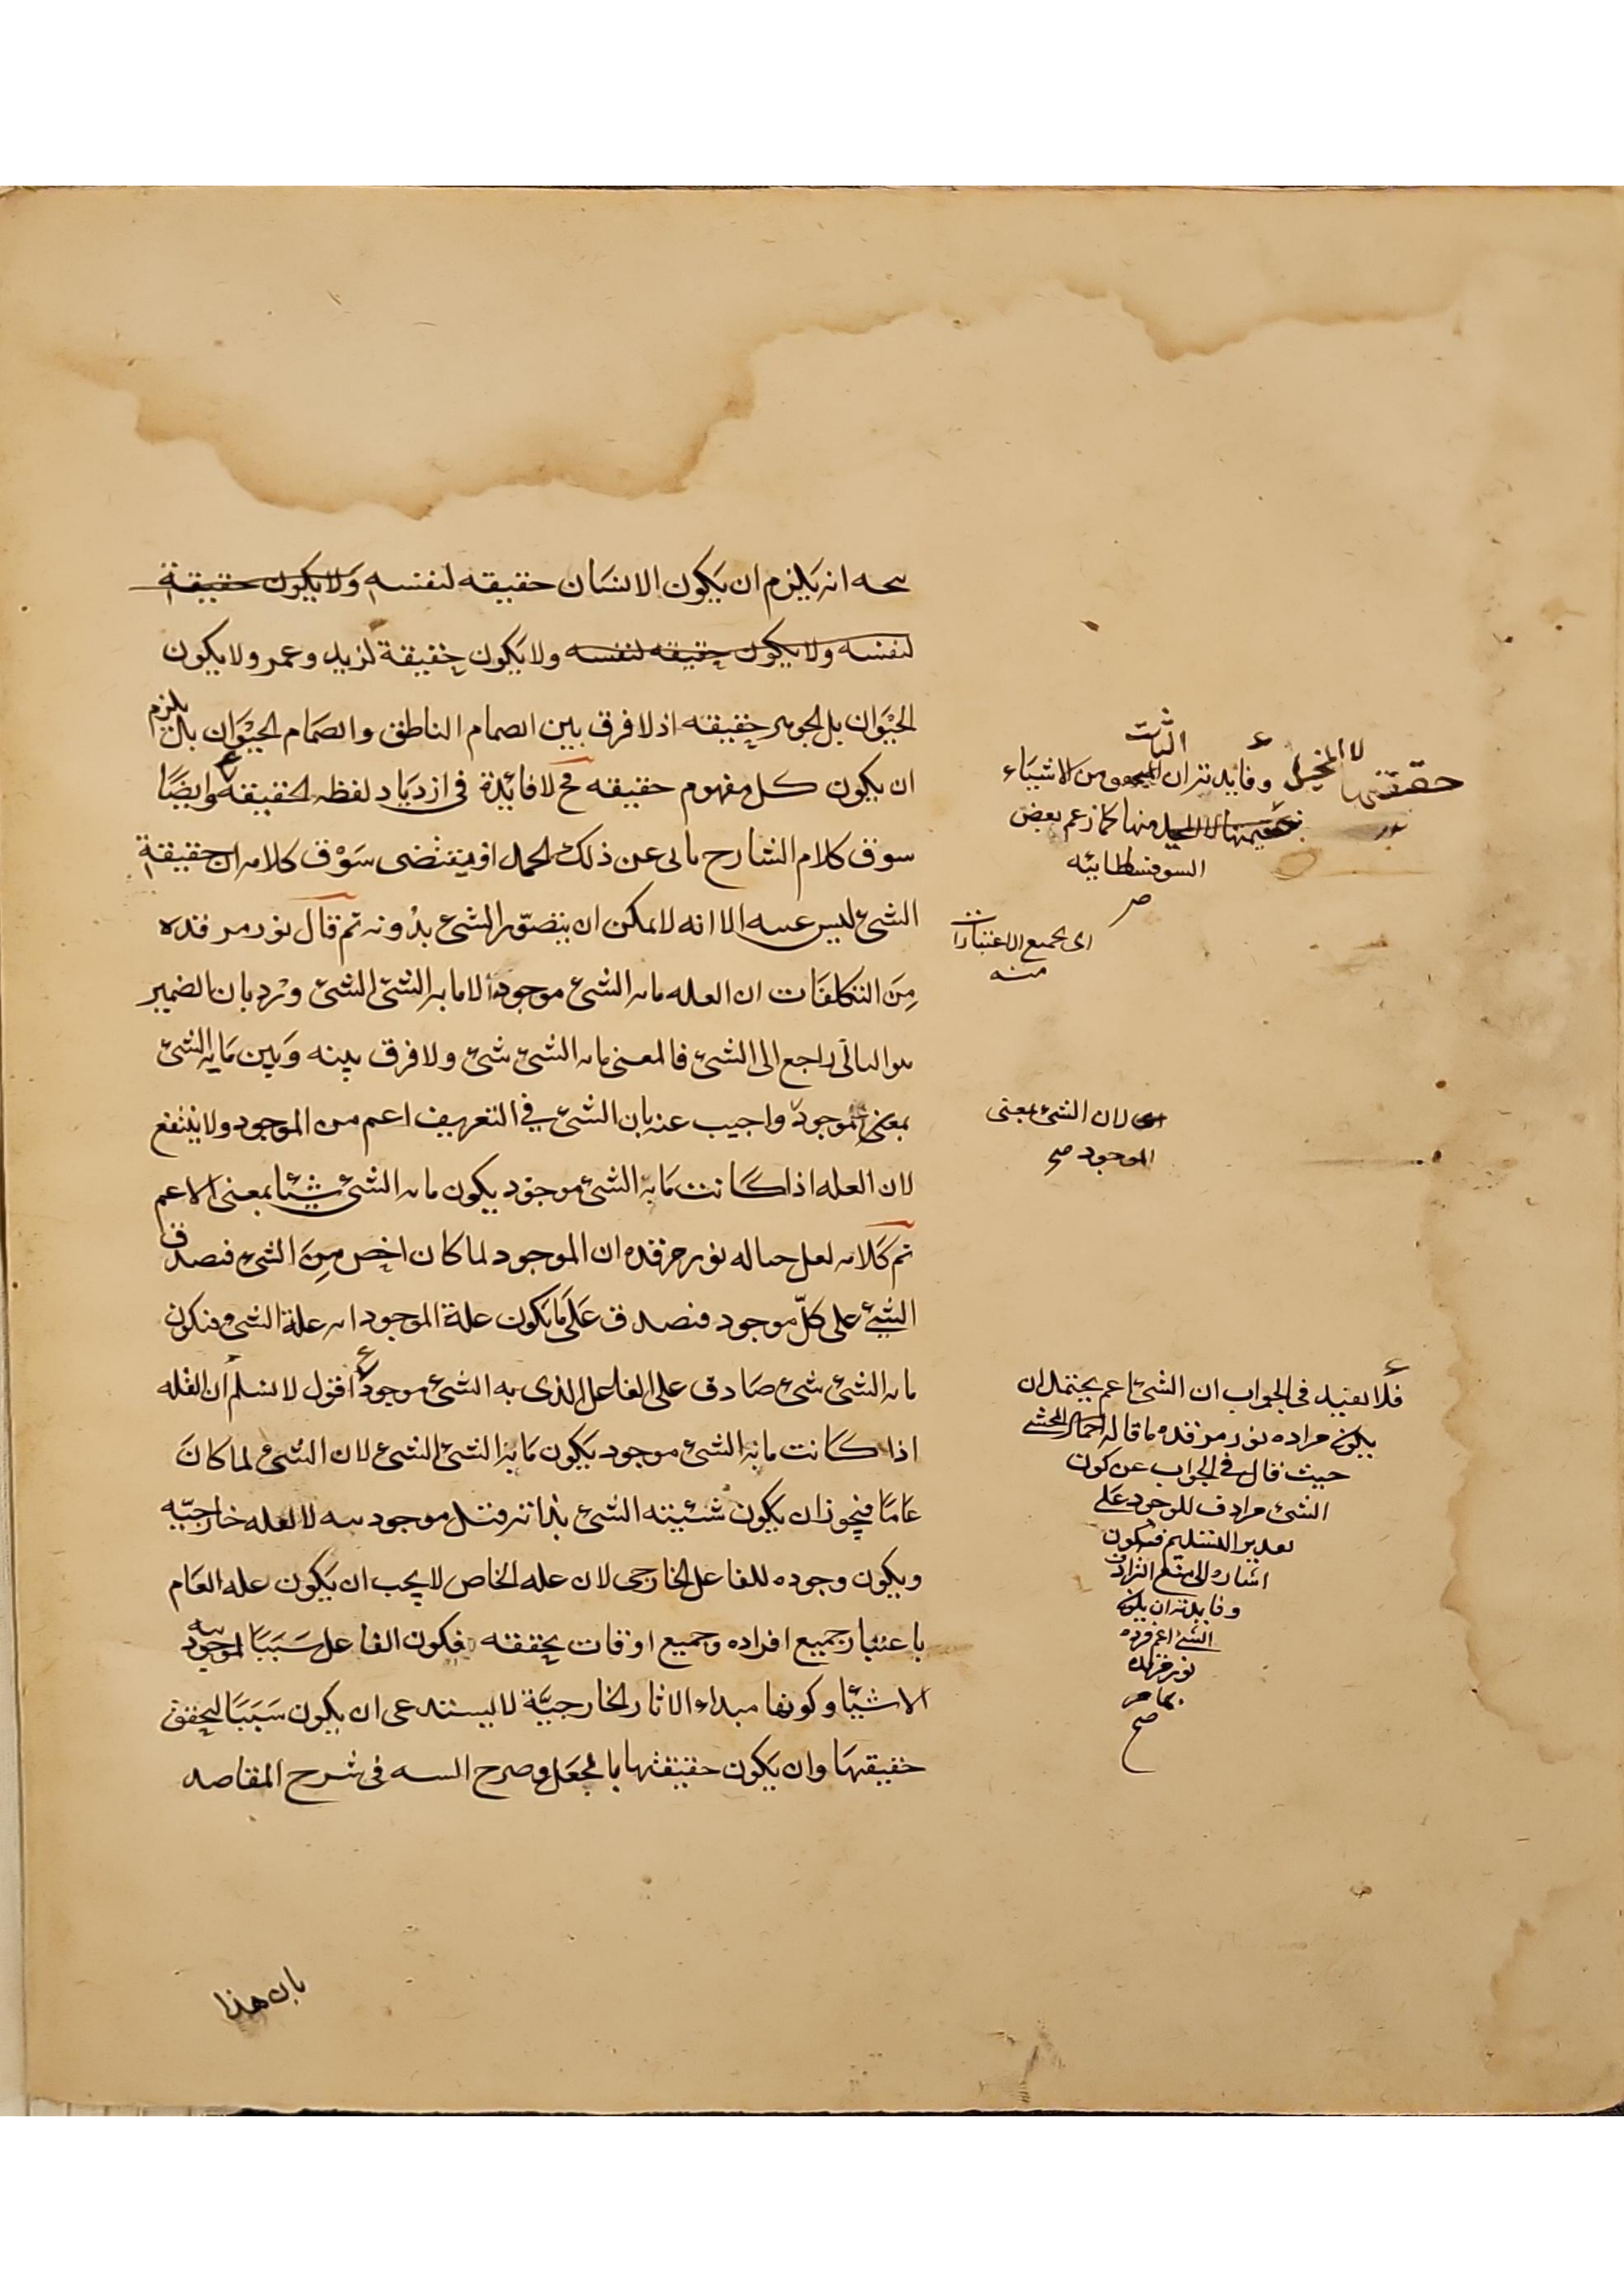 انه يلزم ان يكون الانسان حقيقه لنفسه ولا يكون حقيقة
لنفسه ولا يكون حقيقه لنفسه ولا يكون حقيقة لزيد وعمر ولا يكون
الحيوان بل الجوهر حقيقه اذ لا فرق بين انضمام الناطق وانضمام الحيوان بل يلزم
ان يكون كل مفهوم حقيقه فح لا فائدة فى ازدياد لفظه الحقيقه وايضًا
سوق كلام الشارح يابى عن ذلك الحمل اذ يقتضى سوق كلامه ان حقيقة
الشئ ليس عينه الا انه لا يمكن ان يتصور الشئ بدونه تم قال نور مرقده
من التكلفات ان العله ما به الشئ موجود لا ما به الشئ الشئ ويرد بان الضمير
راجع الى الشئ فالمعنى ما به الشئ شئ ولا فرق بينه وبين ما به الشئ
بمعنى الموجود واجيب عنه بان الشئ في التعريف اعم من الموجود ولا ينفع
لان العله اذا كانت ما به الشئ موجود يكون ما به الشئ شيئا بمعنى الاعم
تم كلامه لعل نور مرقده ان الموجود لما كان اخص من الشئ فصدق
الشئ على كلّ موجود فصدق على ما يكون علة الموجود انه علة الشئ فيكون
ما به الشئ شئ صادق على الفاعل الذى به الشئ موجود اقول لا نسلم ان العله
اذا كانت ما به الشئ موجود يكون ما به الشئ الشئ لان الشئ لما كان
عامًا فيجوز ان يكون شيئيته الشئ بذاته قبل موجوديته لا لعله خارجيّه
ويكون وجوده للفاعل الخارجى لان عله الخاص لا يجب ان يكون عله العام
باعتبار جميع افراده وجميع اوقات تحققه فيكون الفاعل سببًا لموجوديه
الاشيا وكونها مبداء الاثار الخارجيّة لا يستدعى ان يكون سببًا لتحقق
حقيقتها وان يكون حقيقتها بالجعل وصرح فى شرح المقاصد
بان هذا
حقيقتها لا المخيل وفايدته ان من الاشياء
الثابت
منها كما زعم بعض
السوفسطائيه
اى لجميع الاعتبارات
منه
اى لان الشئ بمعنى
الموجود صح
فلا يفيد فى الجواب ان الشئ اعم يحتمل ان
يكون مراده نور مرقده ما قاله المحشى
حيث قال فى الجواب عن كون
الشئ مرادف للوجود على
تقدير التسليم فيكون
اشاره الى منع الترادف
وفايدته ان يكون
الشئ اعم فرده
نور مرقده
صح